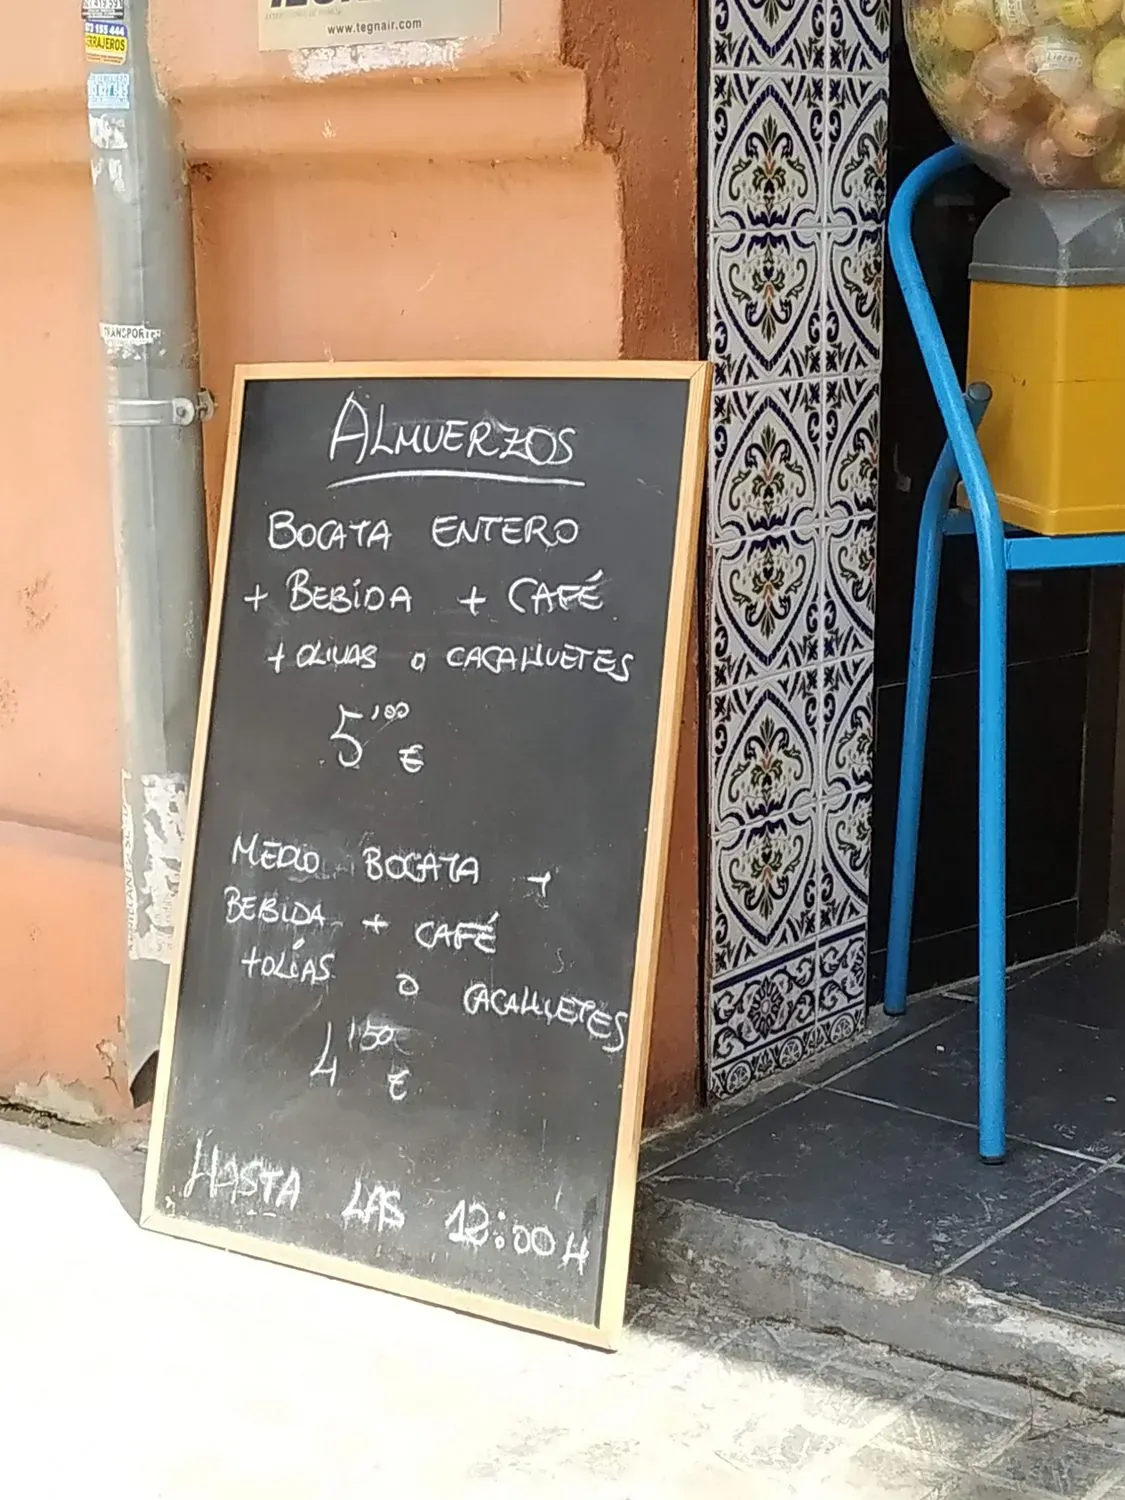 www.tegnair.com
TRANSPORTE
ALMUERZOS
BOCATA ENTERO
+ BEBIDA + CAFÉ
+ OLIVAS O CACAHUETES
5'00 €
MEDIO BOCATA +
BEBIDA + CAFÉ
+OLÍAS O CACAHUETES
4'50 €
HASTA LAS 12:00 H